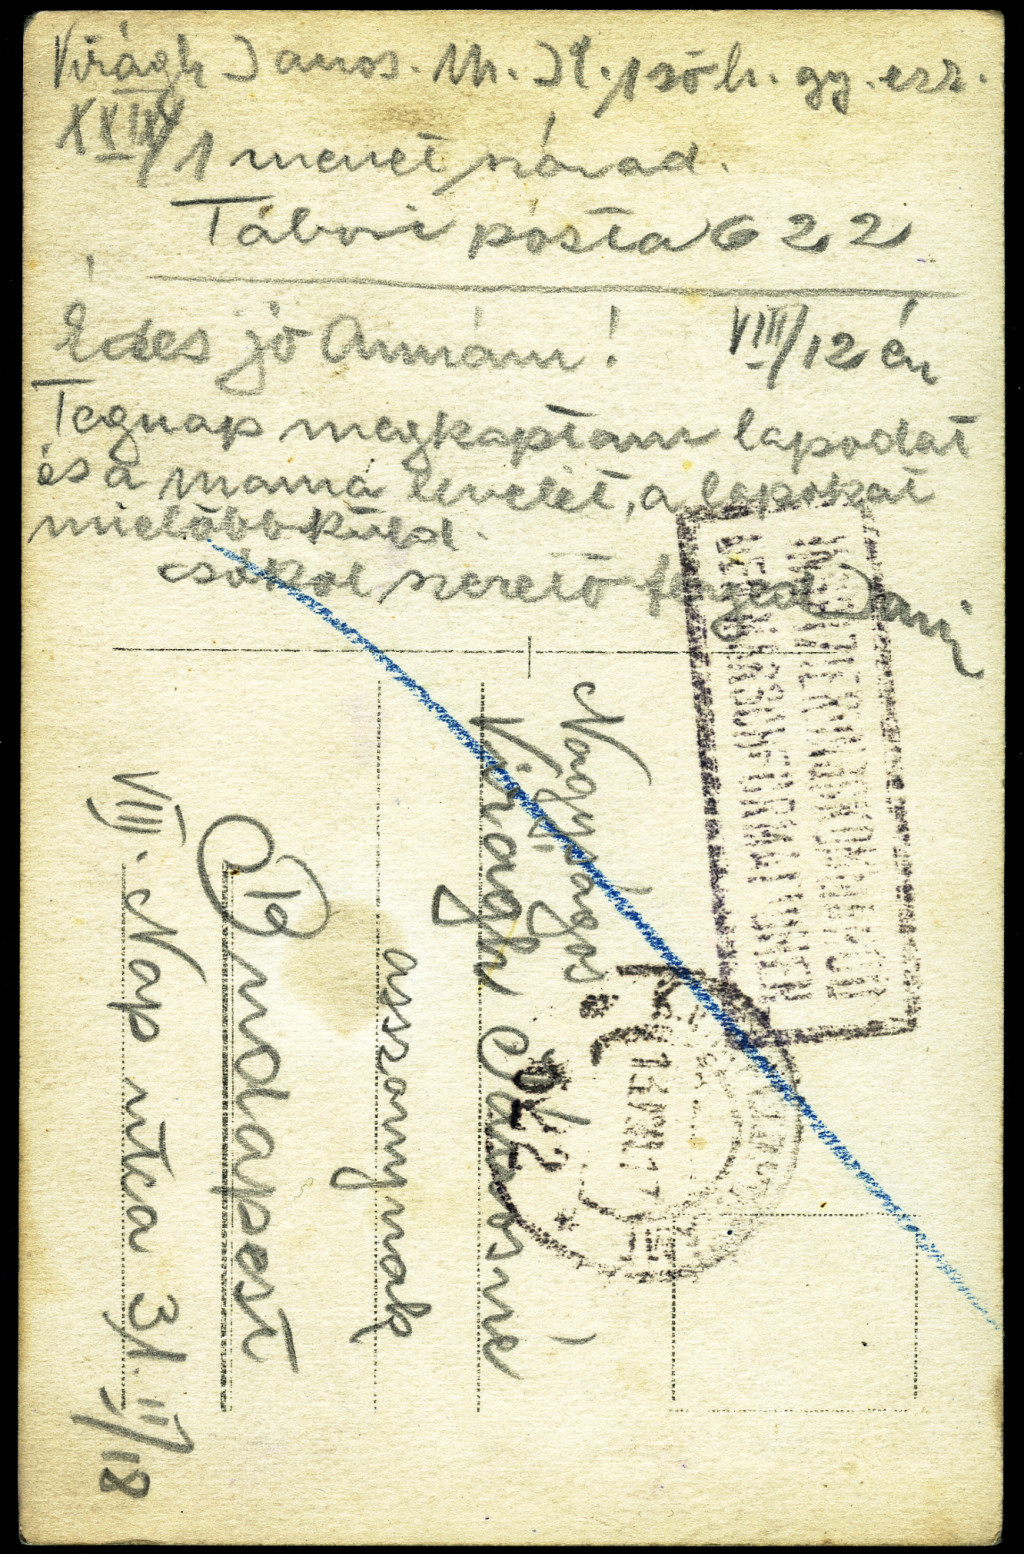 Virágh János. M. k. 1 ső h. gy. ezr.
XXIII/1 menet század.
Tábori posta 622
Édes jó Annám! VIII/12 én
Tegnap megkaptam lapodat
és a mama levelét, a lapokat
mielőbb küld.
csókol szerető férjed Jani
Nagyságos
Virágh Jánosné
asszonynak
Budapest
19
VIII. Nap utca 31. III/18
622